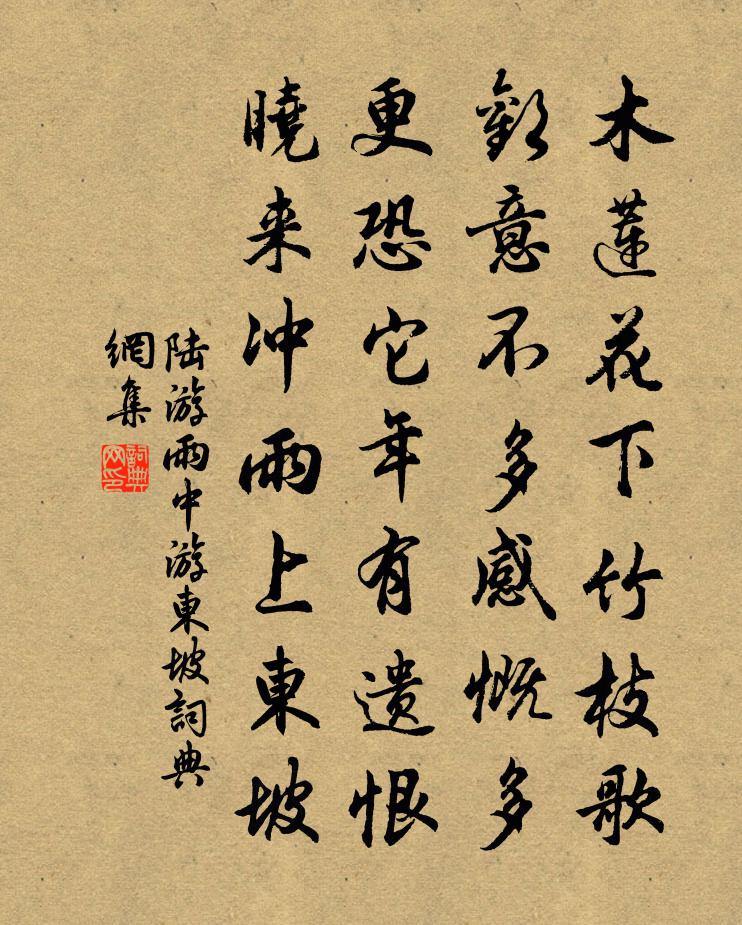 木蓮花下竹枝歌
歡意不多感慨多
更恐它年有遗恨
曉来冲雨上東坡
陆游雨中游東坡詞典
網集
詞典
网印